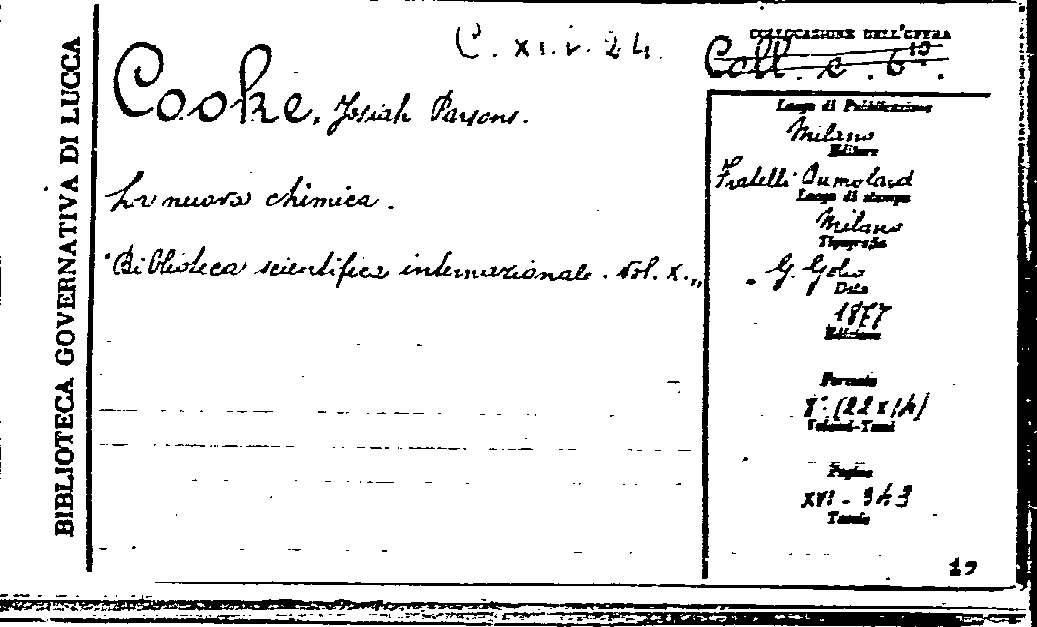 BIBLIOTECA GOVERNATIVA DI LUCCA
C. XI. v. 24.
COLLOCAZIONE DELL'OPERA
Coll. e. 610.
Cooke, Josiah Parsons.
La nuova chimica.
"Biblioteca scientifica internazionale. Vol. X.„
Luogo di Pubblicazione
Milano
Editore
Fratelli Dumolard
Luogo di stampa
Milano
Tipografia
G. Golio
Data
1877
Edizione
Formato
8° (22x14)
Volumi-Tomi
Pagine
XVI - 343
Tavole
19